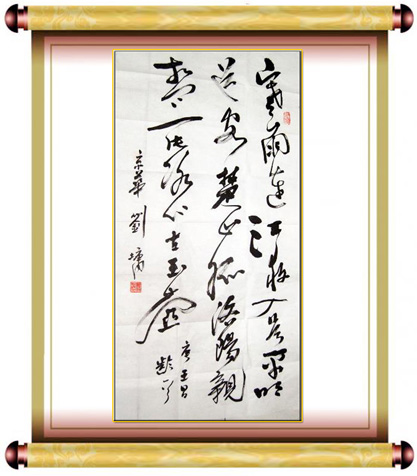 寒雨連江夜入吴平明
送客楚山孤洛陽親
相問一片冰心在玉壺
唐王昌
齡
京華劉墉